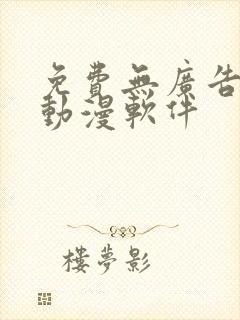 免費無廣告
動漫軟件
樓夢影